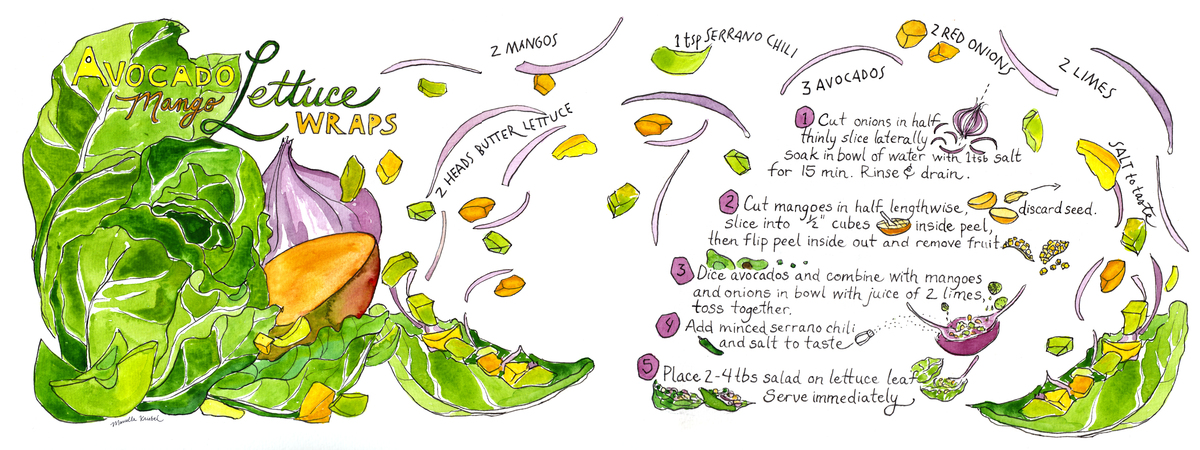 AVOCADO
Mango Lettuce
WRAPS
2 MANGOS
2 HEADS BUTTER LETTUCE
1 tsp SERRANO CHILI
3 AVOCADOS
2 RED ONIONS
2 LIMES
SALT to taste
1 Cut onions in half,
thinly slice laterally
soak in bowl of water with 1 tsb salt
for 15 min. Rinse & drain.
2 Cut mangoes in half lengthwise, discard seed.
slice into ½" cubes inside peel,
then flip peel inside out and remove fruit.
3 Dice avocados and combine with mangoes
and onions in bowl with juice of 2 limes,
toss together.
4 Add minced serrano chili
and salt to taste
5 Place 2-4 tbs salad on lettuce leaf
Serve immediately